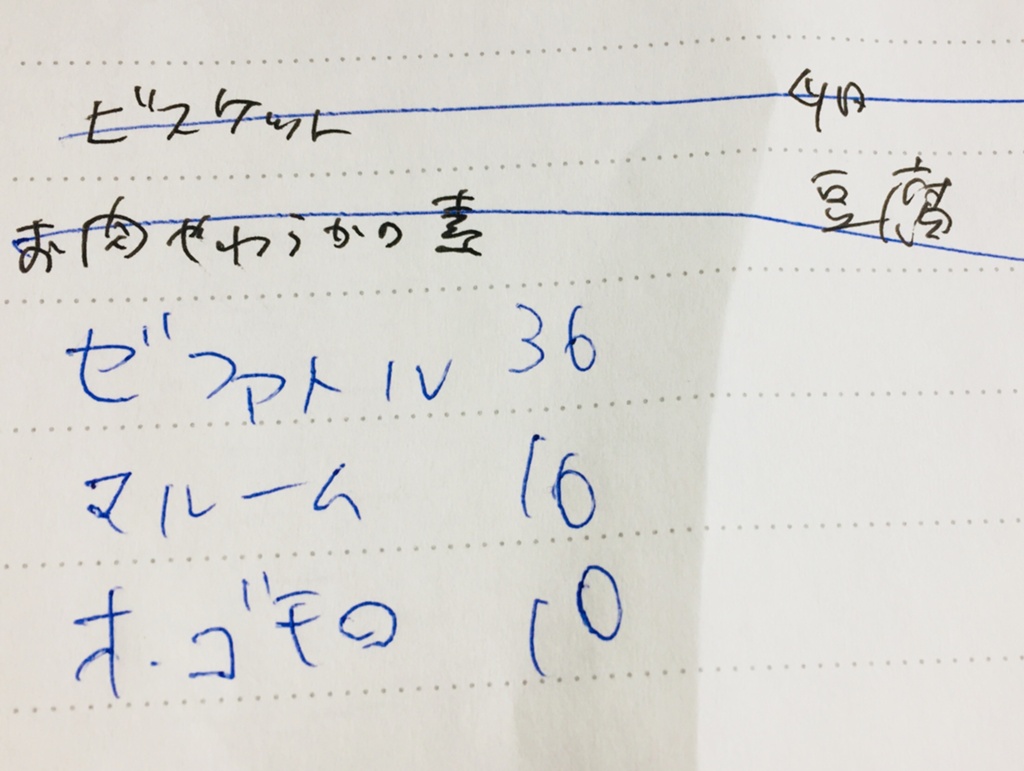 ビスケット
お肉やわらかの素 豆腐
ゼファトル 36
マルーム 16
オ・ゴモの 10